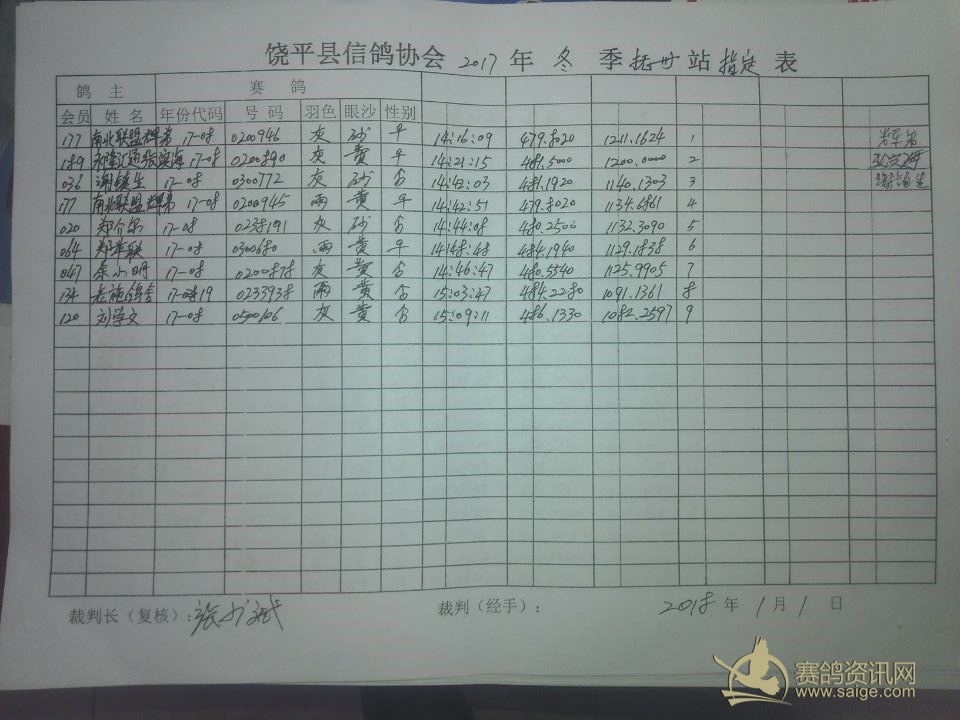 饶平县信鸽协会 2017 年 冬 季 抚州 站 指定 表
鸽 主 赛 鸽
会员 姓 名 年份代码 号 码 羽色 眼沙 性别
177 南北联盟辉弟 17-08 0200946 灰 砂 平 14:16:09 479.8020 1211.1624 1
189 永隆汇通张滨海 17-08 0200890 灰 黄 平 14:21:15 481.5000 1200.0000 2 张滨海
036 谢镇生 17-08 0300772 灰 砂 否 14:42:03 481.1920 1140.1303 3 谢镇生
177 南北联盟辉弟 17-08 0200945 雨 黄 平 14:42:51 479.8020 1134.6861 4
020 郑介弟 17-08 0238191 灰 砂 否 14:44:08 480.2500 1132.3090 5
064 郑 17-08 0300680 雨 黄 平 14:48:48 484.1940 1129.1838 6
047 余小明 17-08 0200878 灰 黄 否 14:46:47 480.5540 1125.9905 7
134 17-19 0233938 雨 黄 否 15:03:47 484.2280 1091.1361 8
120 刘学文 17-08 0500106 灰 黄 否 15:09:11 486.1330 1082.2597 9
裁判长（复核）: 张 斌 裁判（经手）： 2018 年 1 月 1 日
赛鸽资讯网
www.saige.com